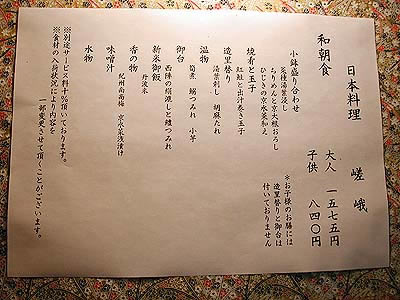 日本料理　嵯峨
和朝食
大人　一五七五円
子供　八四〇円
*お子様のお膳には
造里替りと御台は
付いておりません
小鉢盛り合わせ
ちりめんと京大根おろし
ひじきの京水菜和え
焼肴と玉子
紅鮭と出汁巻き玉子
造里替り
湯葉刺し　胡麻だれ
温物
筍煮　鰯つみれ　小芋
御台
西陣の絹漉しと鰻つみれ
新米御飯
丹波米
香の物
紀州南高梅　京水菜浅漬け
味噌汁
水物
※別途サービス料十%頂いております。
※食材の入荷状況により内容を
一部変更させて頂くことがございます。